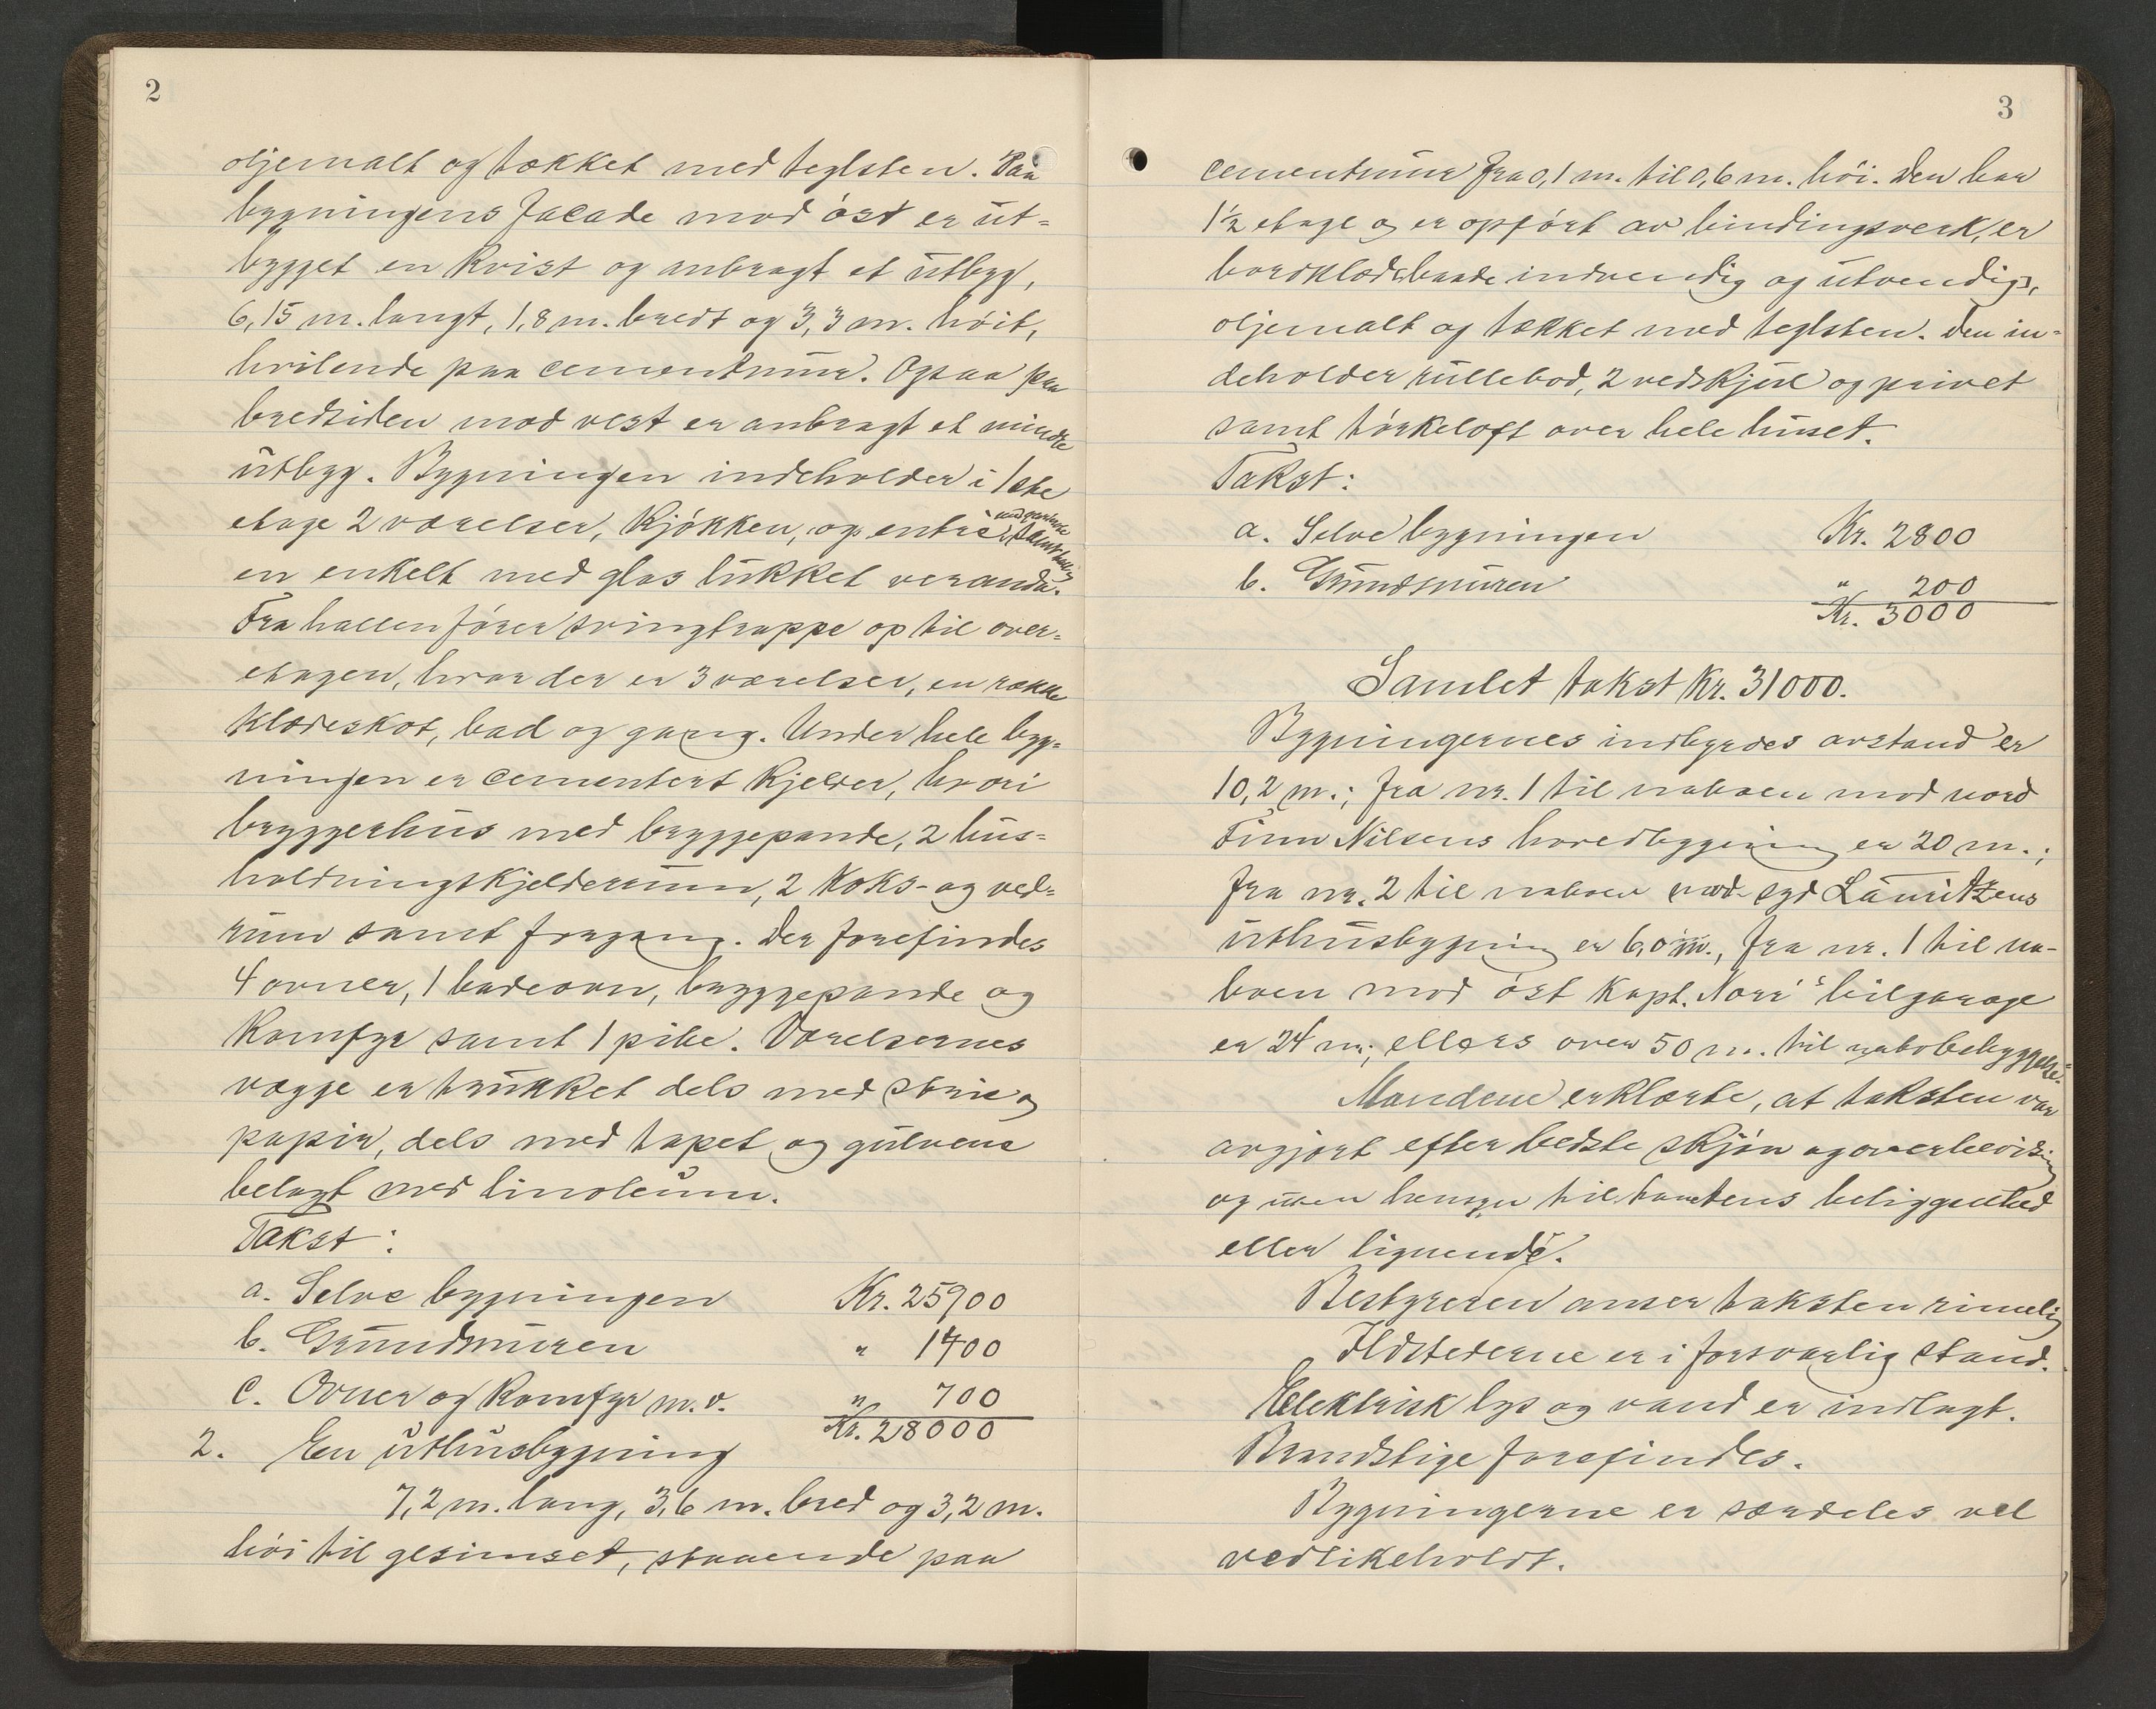 2
oljemalt og tækket med teglsten. Paa
bygningens facade mod øst er ut=
bygget en kvist og anbragt et utbyg,
6,15 m. langt, 1,8 m. bredt og 3,3 m. höit,
hvilende paa cementmur. Ogsaa paa
bredsiden mod vest er anbragt et mindre
utbyg. Bygningen indeholder i 1ste
etage 2 værelser, kjökken, og entré med garderobe samt hall og
en enkelt med glas lukket veranda.
Fra hallen förer svingtrappe op til over=
etagen, hvor der er 3 værelser, en række
klædeskot, bad og gang. Under hele byg=
ningen er cementert kjelder, hvori
bryggerhus med bryggepande, 2 hus=
holdningskjelderrum, 2 koks- og ved=
rum samt forgang. Der forefindes
4 ovner, 1 badeovn, bryggepande og
komfyr samt 1 pibe. Værelsernes
vægge er trukket dels med strie og
papir, dels med tapet og gulvene
belagt med linoleum.
Takst:
a. Selve bygningen Kr. 25900
b. Grundmuren " 1400
c. Ovner og komfyr m.v. " 700
Kr. 28000
2. En uthusbygning
7,2 m. lang, 3,6 m. bred og 3,2 m.
höi til gesimset, staaende paa
3
cementmur fra 0,1 m. til 0,6 m. höi. Den har
1½ etage og er opfört av bindingsverk, er
bordklædt baade indvendig og utvendig,
oljemalt og tækket med teglsten. Den in=
deholder rullebod, 2 vedskjul og privet
samt törkeloft over hele huset.
Takst:
a. Selve bygningen Kr. 2800
b. Grundmuren " 200
Kr. 3000
Samlet takst Kr. 31000.
Bygningernes indbyrdes avstand er
10,2 m.; fra nr. 1 til naboen mod nord
Finn Nilsens hovedbygning er 20 m.;
fra nr. 2 til naboen mod syd Lauritzens
uthusbygning er 6,0 m., fra nr. 1 til na-
boen mod öst Kapt. Norr's bilgarage
er 24 m.; ellers over 50 m. til nabobebyggelse.
Mændene erklærte, at taksten var
avgjort efter bedste skjön og overbevisning
og uten hensyn til tomtens beliggenhed
eller lignende.
Bestyreren anser taksten rimelig
Ildstederne er i forsvarlig stand.
Elektrisk lys og vand er indlagt.
Brandstige forefindes.
Bygningerne er særdeles vel
vedlikeholdt.